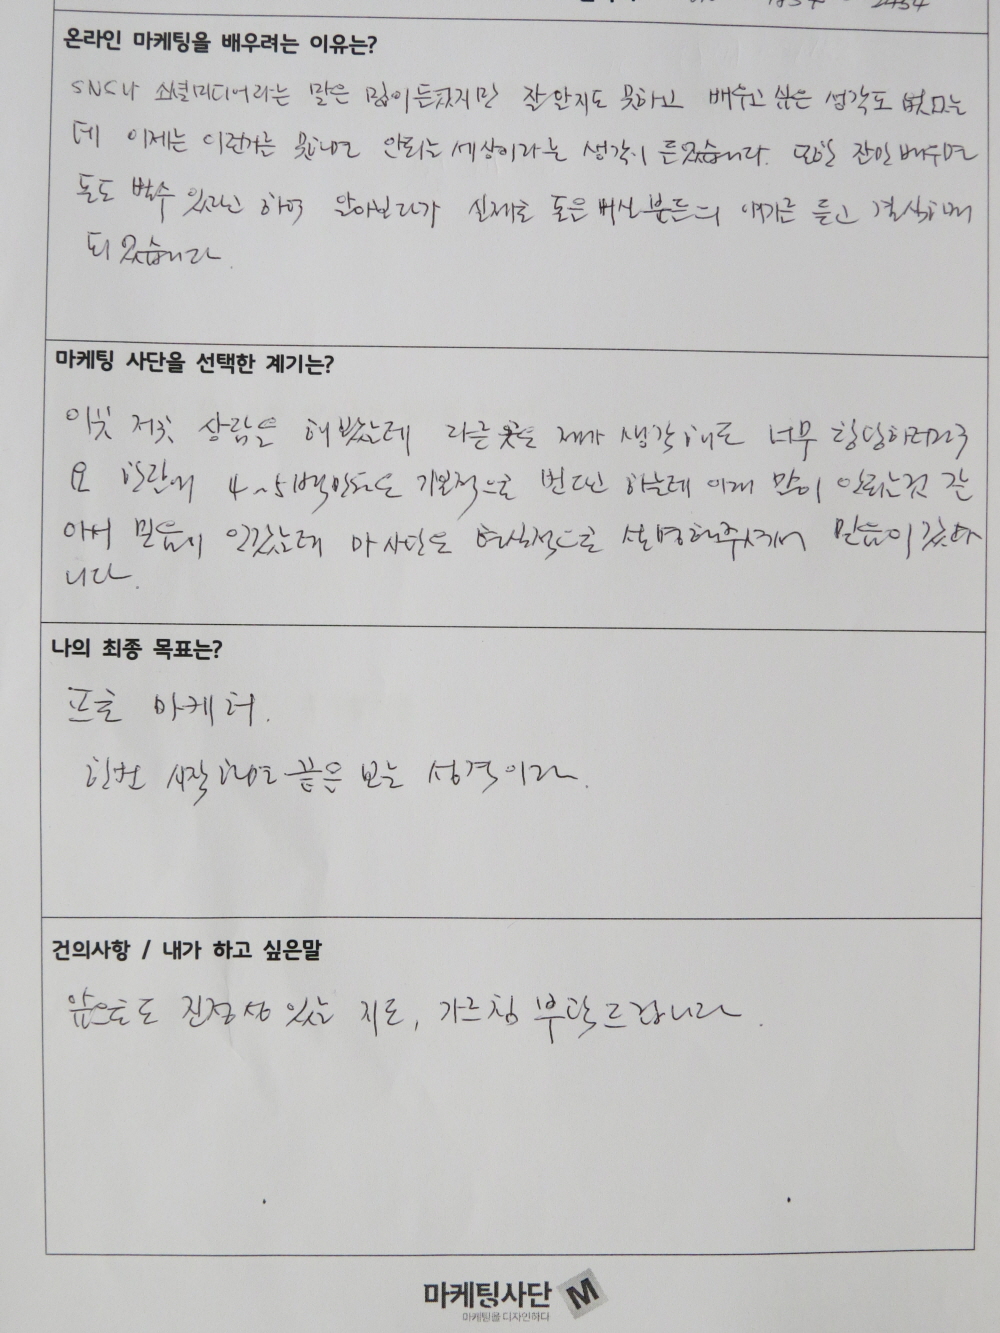 온라인 마케팅을 배우려는 이유는?
SNS나 소셜미디어라는 말은 많이 들었지만 잘 알지도 못하고 배우고 싶은 생각도 없었는
데 이제는 이런거는 못하면 안되는 세상이라는 생각이 들었습니다. 또한 잘만 배우면
돈도 벌수 있다고 하여 알아보다가 실제로 돈은 버신 분들의 얘기를 듣고 결심하게
되었습니다.
마케팅 사단을 선택한 계기는?
이곳 저곳 상담을 해봤는데 다른 곳은 제가 생각해도 너무 황당하더라구
요 한달에 4~5백만원도 기본적으로 번다고 하는데 이해 많이 안되는것 같
아서 믿음이 안갔는데 마사단은 현실적으로 설명해주셔서 믿음이 갔습
니다.
나의 최종 목표는?
프로 마케터.
한번 시작하면 끝은 보는 성격이라.
건의사항 / 내가 하고 싶은말
앞으로도 진정성 있는 지도, 가르침 부탁드립니다.
마케팅사단 M
마케팅을 디자인하다